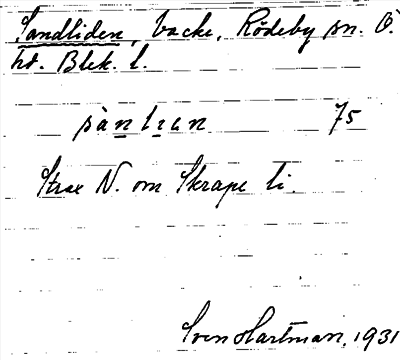 Sandliden, backe, Rödeby sn. Ö.
hd. Blek. l.
sàn li̯n 75
Strax N. om Skrape li.
Sven Hartman, 1931